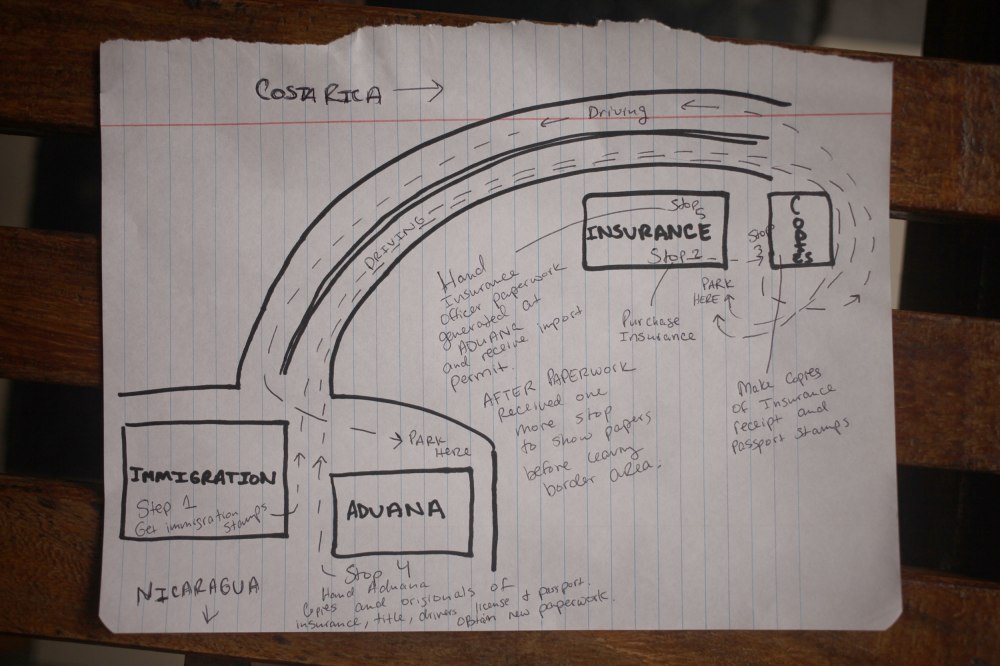 COSTA RICA
Driving
DRIVING
Stop
5
INSURANCE
Stop 2
Stop
3
COPIES
PARK
HERE
Hand
Insurance
officer paperwork
generated at
ADUANA
and receive import
permit.
Purchase
Insurance
AFTER PAPERWORK
Received one
more stop
to show papers
before leaving
border area.
Make Copies
of Insurance
receipt and
Passport Stamps
PARK
HERE
IMMIGRATION
Step 1
Get immigration
Stamps
ADUANA
NICARAGUA
Stop 4
Hand Aduana
Copies and origionals of
insurance, title, drivers license & passport.
Obtain new paperwork.